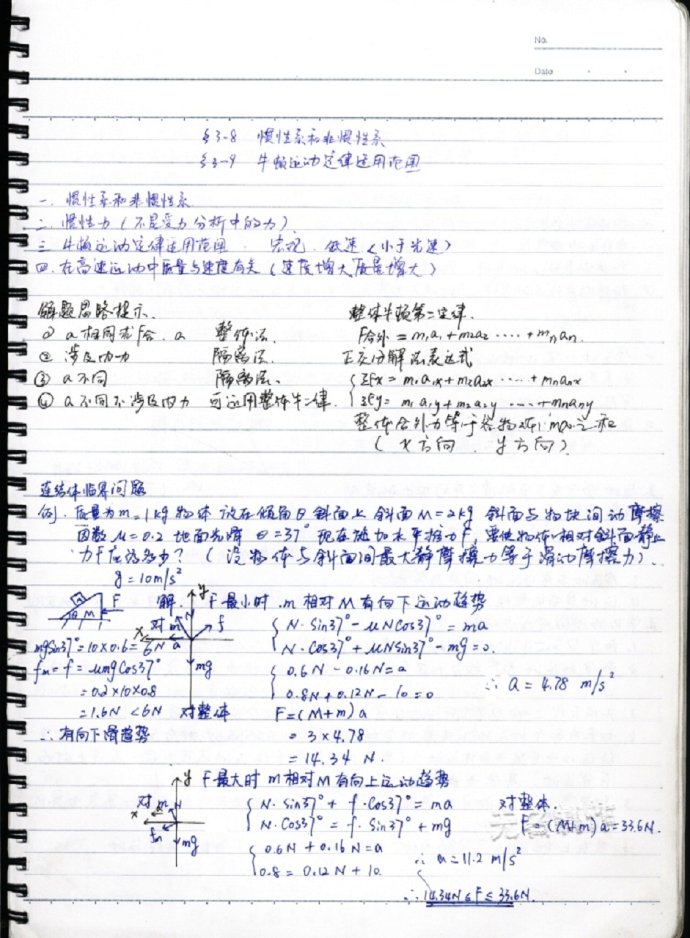 No.
Date
§3-8 惯性系和非惯性系
§3-9 牛顿运动定律适用范围
一. 惯性系和非惯性系
二. 惯性力(不是受力分析中的力)
三. 牛顿运动定律适用范围: 宏观、低速(小于光速)
四. 在高速运动中质量与速度有关(速度增大质量增大)
解题思路提示. 整体牛顿第二定律.
① a相同求F合. a 整体法. F合外 = m₁a₁+m₂a₂ ····+mₙaₙ.
② 涉及内力 隔离法. 正交分解法表达式
③ a不同 隔离法. ΣFx = m₁a₁x+m₂a₂x ····+mₙaₙx
④ a不同不涉及内力 可运用整体牛二律. ΣFy = m₁a₁y+m₂a₂y ····+mₙaₙy
整体合外力等于各物体ma之和
(x方向、y方向).
连结体临界问题
例. 质量为m=1kg物体放在倾角θ斜面上 斜面M=2kg 斜面与物块间动摩擦
因数μ=0.2 地面光滑 θ=37° 现在施加水平推力F, 要使物体相对斜面静止
力F在该多少?(设物体与斜面间最大静摩擦力等于滑动摩擦力).
g=10m/s²
m M θ F 解. F最小时.m相对M有向下运动趋势
对m N y f x a mg N·Sin37°-μNCos37°=ma
N·Cos37°+μNSin37°-mg=0.
mgSin37°=10×0.6=6N
fm=f=μmgCos37° 0.6N-0.16N=a
=0.2×10×0.8 0.8N+0.12N-10=0 ∴ a=4.78 m/s²
=1.6N<6N 对整体 F=(M+m)a
∴有向下滑趋势 =3×4.78
=14.34 N.
y F最大时 m相对M有向上运动趋势
对m N x fm mg N·Sin37°+f·Cos37°=ma 对整体.
N·Cos37°=f·Sin37°+mg F=(M+m)a=33.6N.
0.6N+0.16N=a ∴ a=11.2 m/s²
0.8=0.12N+10.
∴ 14.34N≤F≤33.6N.